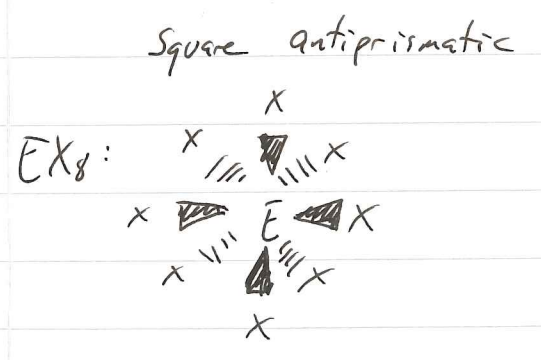 Square antiprismatic
X
X X
EX₈:
X E X
X X
X